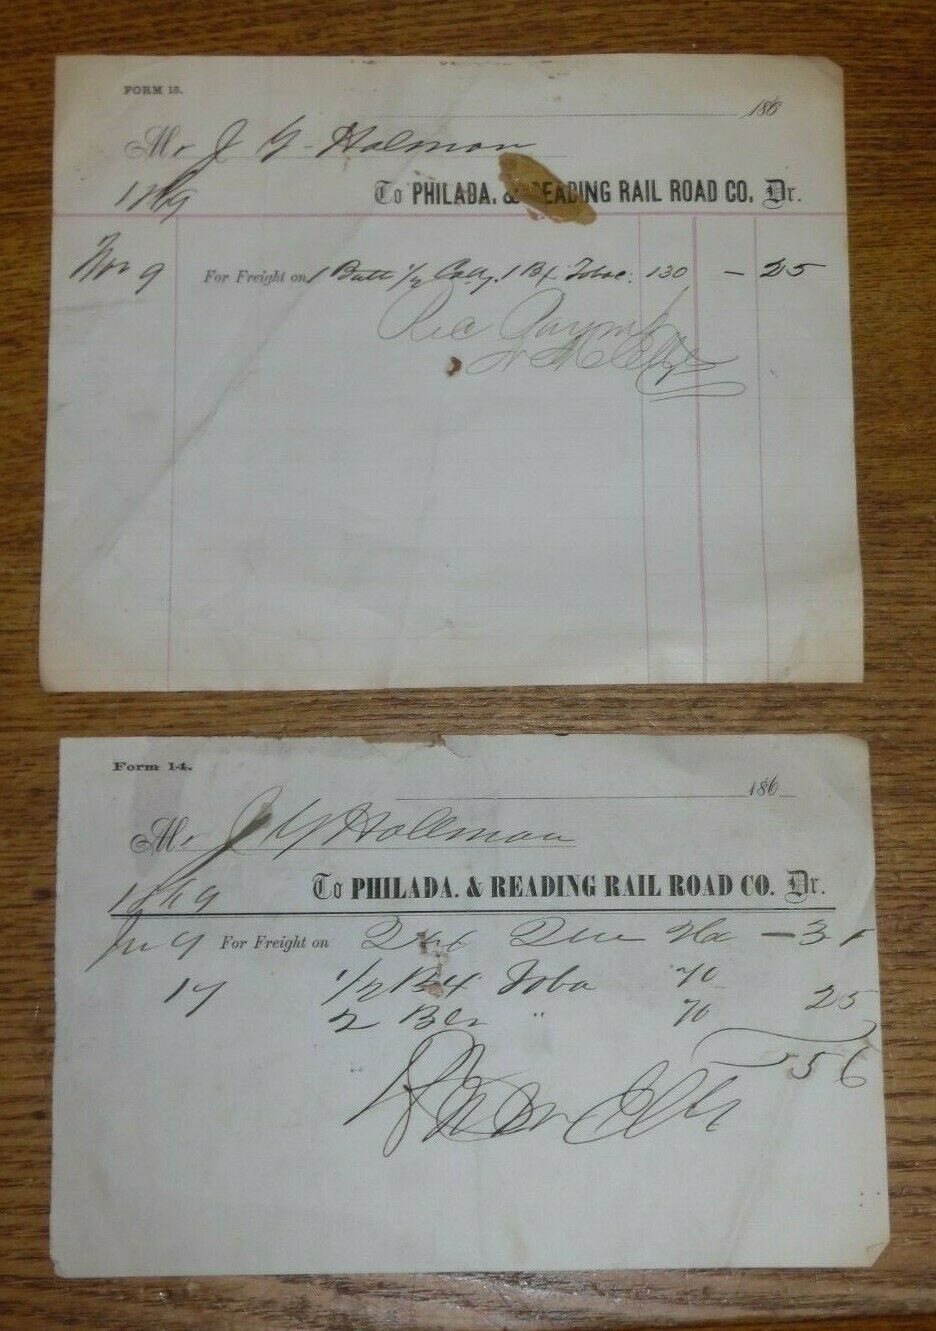 FORM 15.
186
Mr J Y Holman
1869 To PHILADA. & READING RAIL ROAD CO. Dr.
Nov 9 For Freight on 1 Butt 1/2 Cady. 1 Bx Tobac. 130 — 25
Rec Paymt
Form 14.
186
Mr J Y Hollman
1869 To PHILADA. & READING RAIL ROAD CO. Dr.
9 For Freight on 2 — 31
17 1/2 Bx Toba 70
2 " 70 25
56